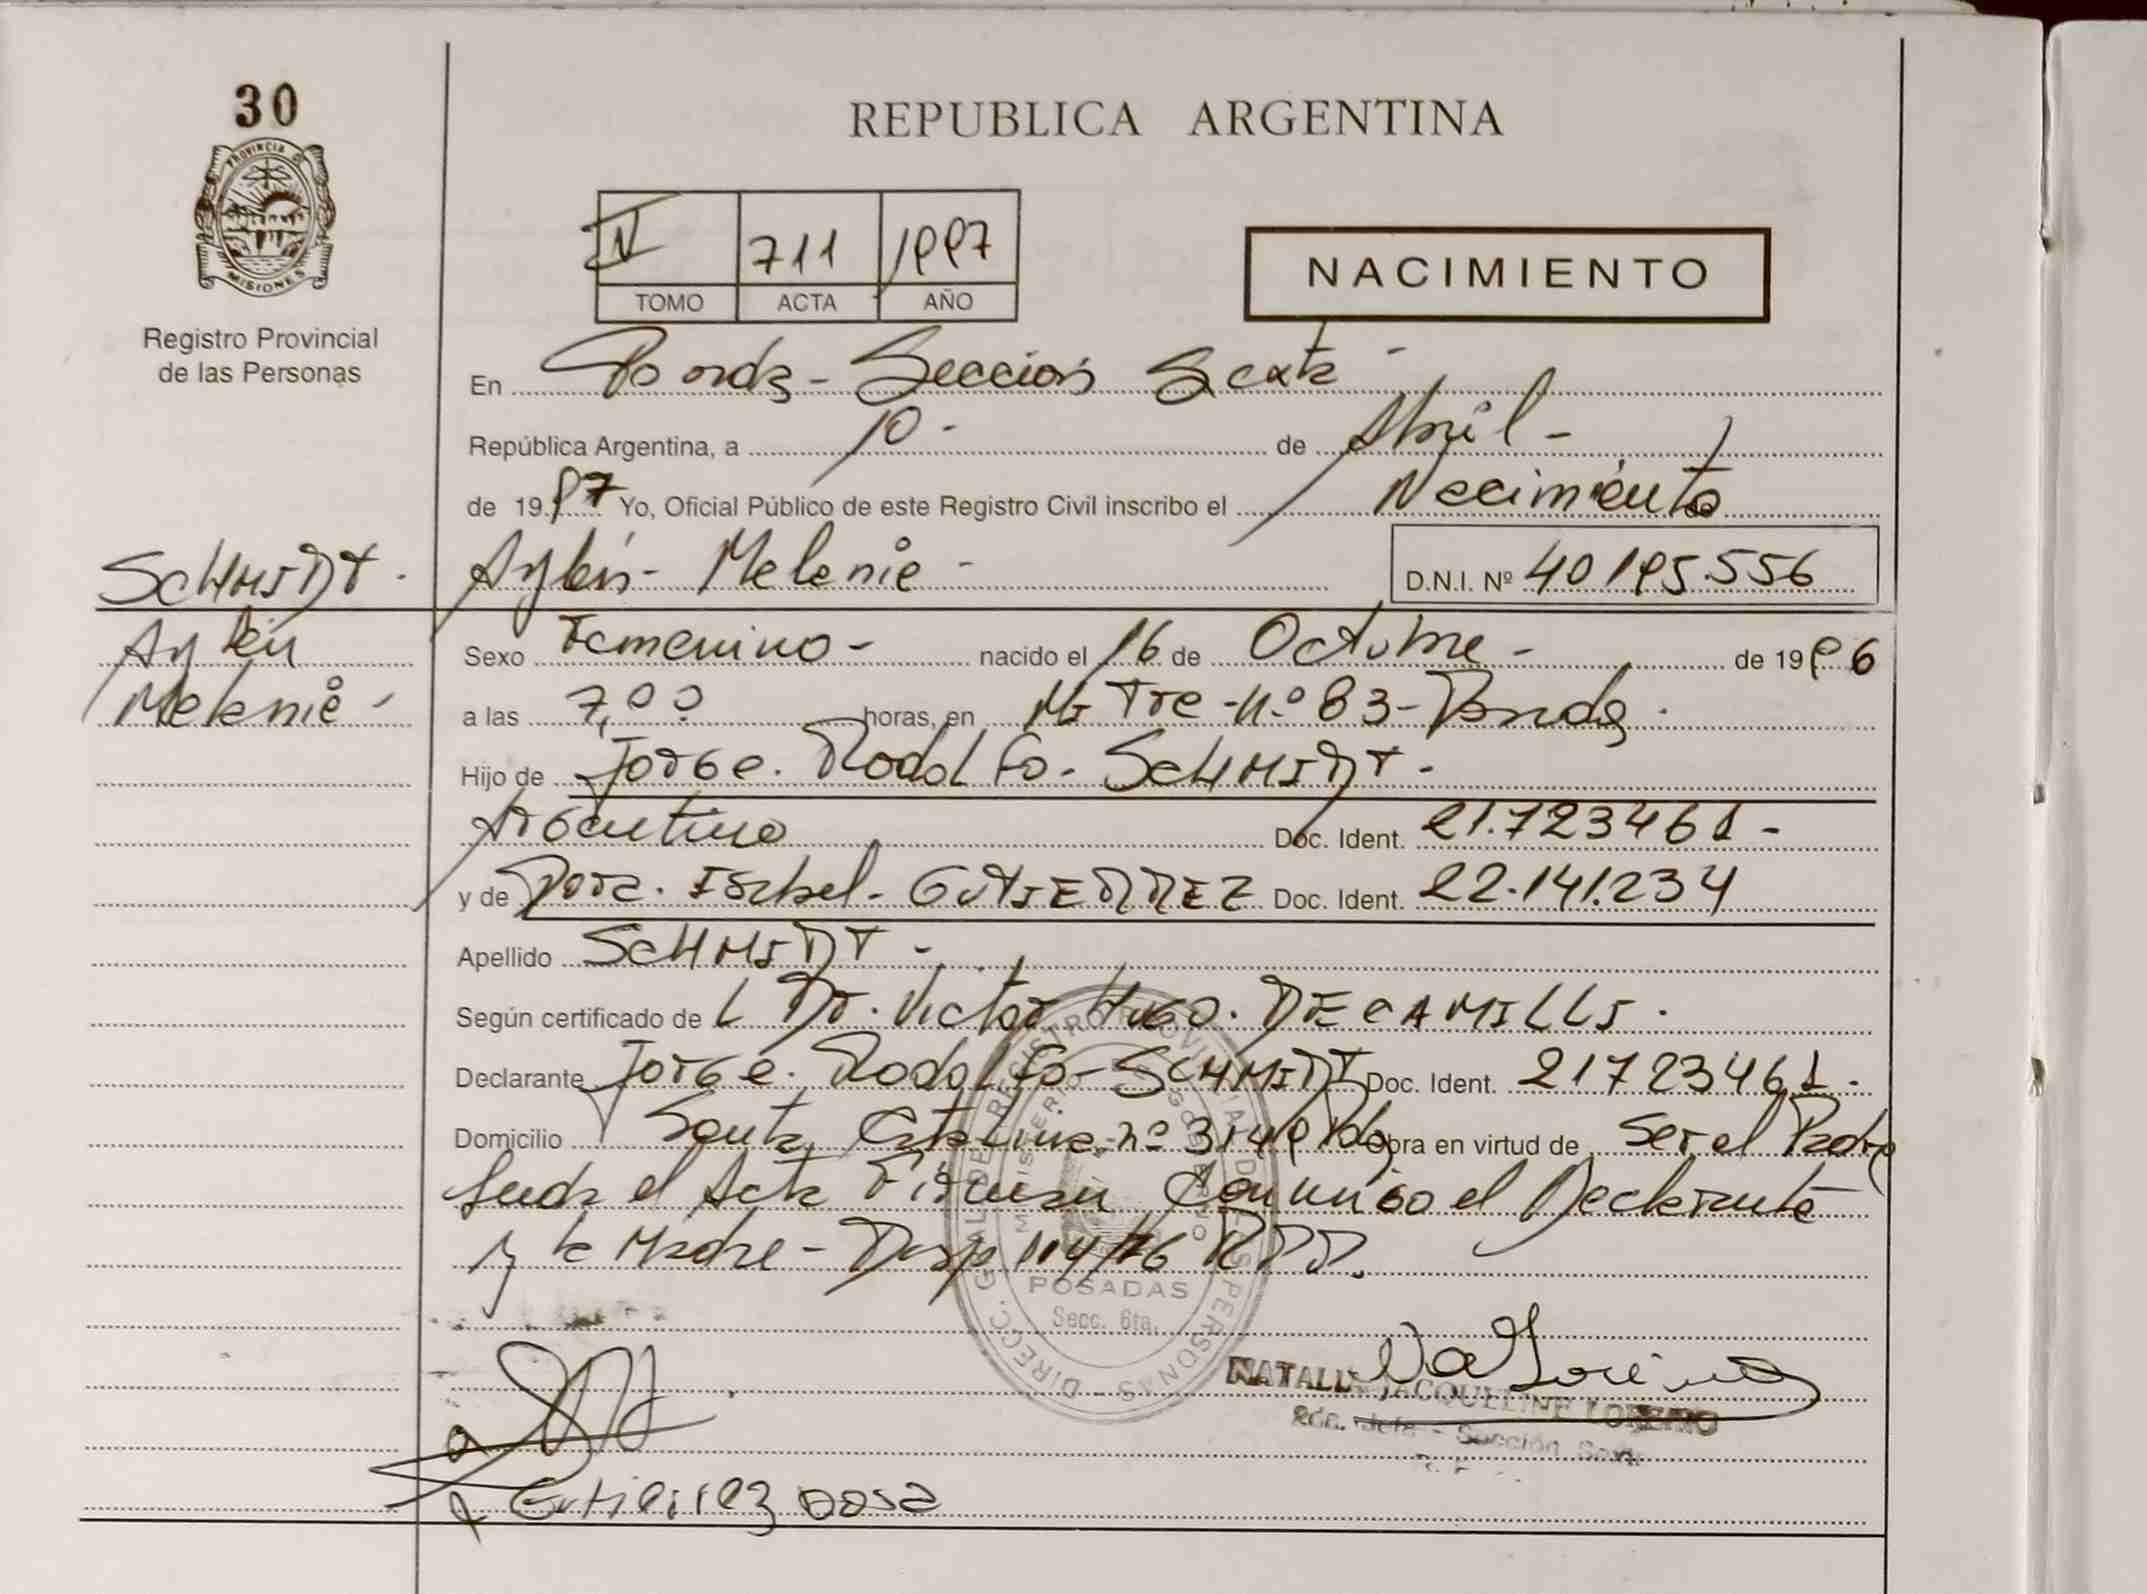 30
PROVINCIA D
MISIONES
Registro Provincial
de las Personas
REPUBLICA ARGENTINA
IV 711 1997
TOMO ACTA AÑO
NACIMIENTO
En Posadas - Sección Sexta -
República Argentina, a 10 - de Abril -
de 1997 Yo, Oficial Público de este Registro Civil inscribo el Nacimiento
SCHMIDT - Aylén - Melanie - D.N.I. Nº 40195.556
Aylén
Melanie -
Sexo Femenino - nacido el 16 de Octubre - de 1996
a las 7,00 horas, en Mitre - nº 83 - Posadas.
Hijo de Jorge. Rodolfo - SCHMIDT -
Argentino Doc. Ident. 21.723461 -
y de Dora. Isabel - GUTIERREZ Doc. Ident. 22.141.234
Apellido SCHMIDT -
Según certificado de L Dr. Victor Hugo. DECAMILLI.
Declarante Jorge. Rodolfo - SCHMIDT Doc. Ident. 21723461 -
Domicilio Santa Catalina - nº 3149 Pdas Obra en virtud de ser el Padre
Leida el Acta Firman Conmigo el Declarante
y la Madre - Disp 114/76 RPP.
DIRECC. GRAL. DE REGISTRO PROVINCIAL DE LAS PERSONAS
MINISTERIO GOBIERNO
POSADAS
Secc. 6ta.
NATALIA JACQUELINE LOREIRO
Jefe - Sección Sexta
Gutierrez Dora